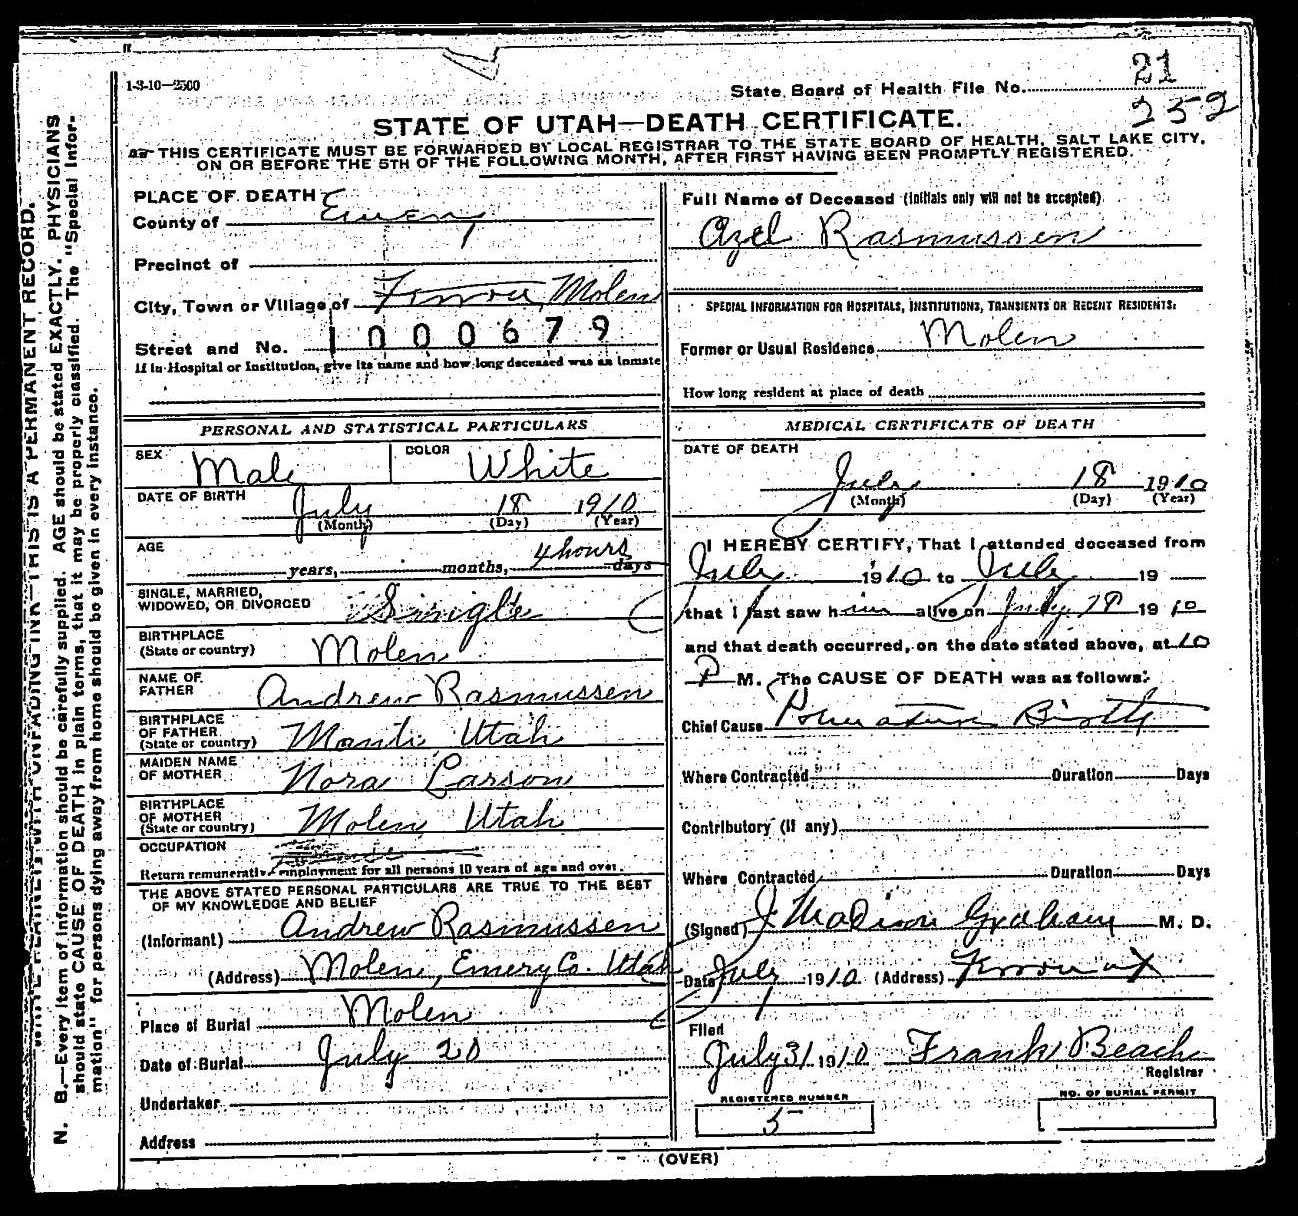 1-3-10—2500
State Board of Health File No. 21
252
STATE OF UTAH—DEATH CERTIFICATE.
THIS CERTIFICATE MUST BE FORWARDED BY LOCAL REGISTRAR TO THE STATE BOARD OF HEALTH, SALT LAKE CITY,
ON OR BEFORE THE 5TH OF THE FOLLOWING MONTH, AFTER FIRST HAVING BEEN PROMPTLY REGISTERED.
N. B.—Every item of information should be carefully supplied. AGE should be stated EXACTLY. PHYSICIANS
should state CAUSE OF DEATH in plain terms, that it may be properly classified. The "Special Infor-
mation" for persons dying away from home should be given in every instance.
WRITE PLAINLY WITH UNFADING INK—THIS IS A PERMANENT RECORD.
PLACE OF DEATH
County of Emery
Precinct of
City, Town or Village of Ferron, Molen
1000679
Street and No.
If in Hospital or Institution, give its name and how long deceased was an inmate
PERSONAL AND STATISTICAL PARTICULARS
SEX Male COLOR White
DATE OF BIRTH July 18 1910
(Month) (Day) (Year)
AGE 4 hours
years, months, days
SINGLE, MARRIED,
WIDOWED, OR DIVORCED Single
BIRTHPLACE
(State or country) Molen
NAME OF
FATHER Andrew Rasmussen
BIRTHPLACE
OF FATHER
(State or country) Manti, Utah
MAIDEN NAME
OF MOTHER Nora Larson
BIRTHPLACE
OF MOTHER
(State or country) Molen, Utah
OCCUPATION
Return remunerative employment for all persons 10 years of age and over.
THE ABOVE STATED PERSONAL PARTICULARS ARE TRUE TO THE BEST
OF MY KNOWLEDGE AND BELIEF
(Informant) Andrew Rasmussen
(Address) Molen, Emery Co. Utah
Place of Burial Molen
Date of Burial July 20
Undertaker
Address
Full Name of Deceased (Initials only will not be accepted)
Azel Rasmussen
SPECIAL INFORMATION FOR HOSPITALS, INSTITUTIONS, TRANSIENTS OR RECENT RESIDENTS:
Former or Usual Residence Molen
How long resident at place of death
MEDICAL CERTIFICATE OF DEATH
DATE OF DEATH
July 18 1910
(Month) (Day) (Year)
I HEREBY CERTIFY, That I attended deceased from
July 1910 to July 19
that I last saw him alive on July 18 1910
and that death occurred, on the date stated above, at 10
P M. The CAUSE OF DEATH was as follows:
Chief Cause Birth
Where Contracted Duration Days
Contributory (if any)
Where Contracted Duration Days
(Signed) J. Madison Graham M. D.
Date July 1910 (Address) Ferron
Filed
July 31 1910 Frank Beach
Registrar
REGISTERED NUMBER
5
NO. OF BURIAL PERMIT
(OVER)